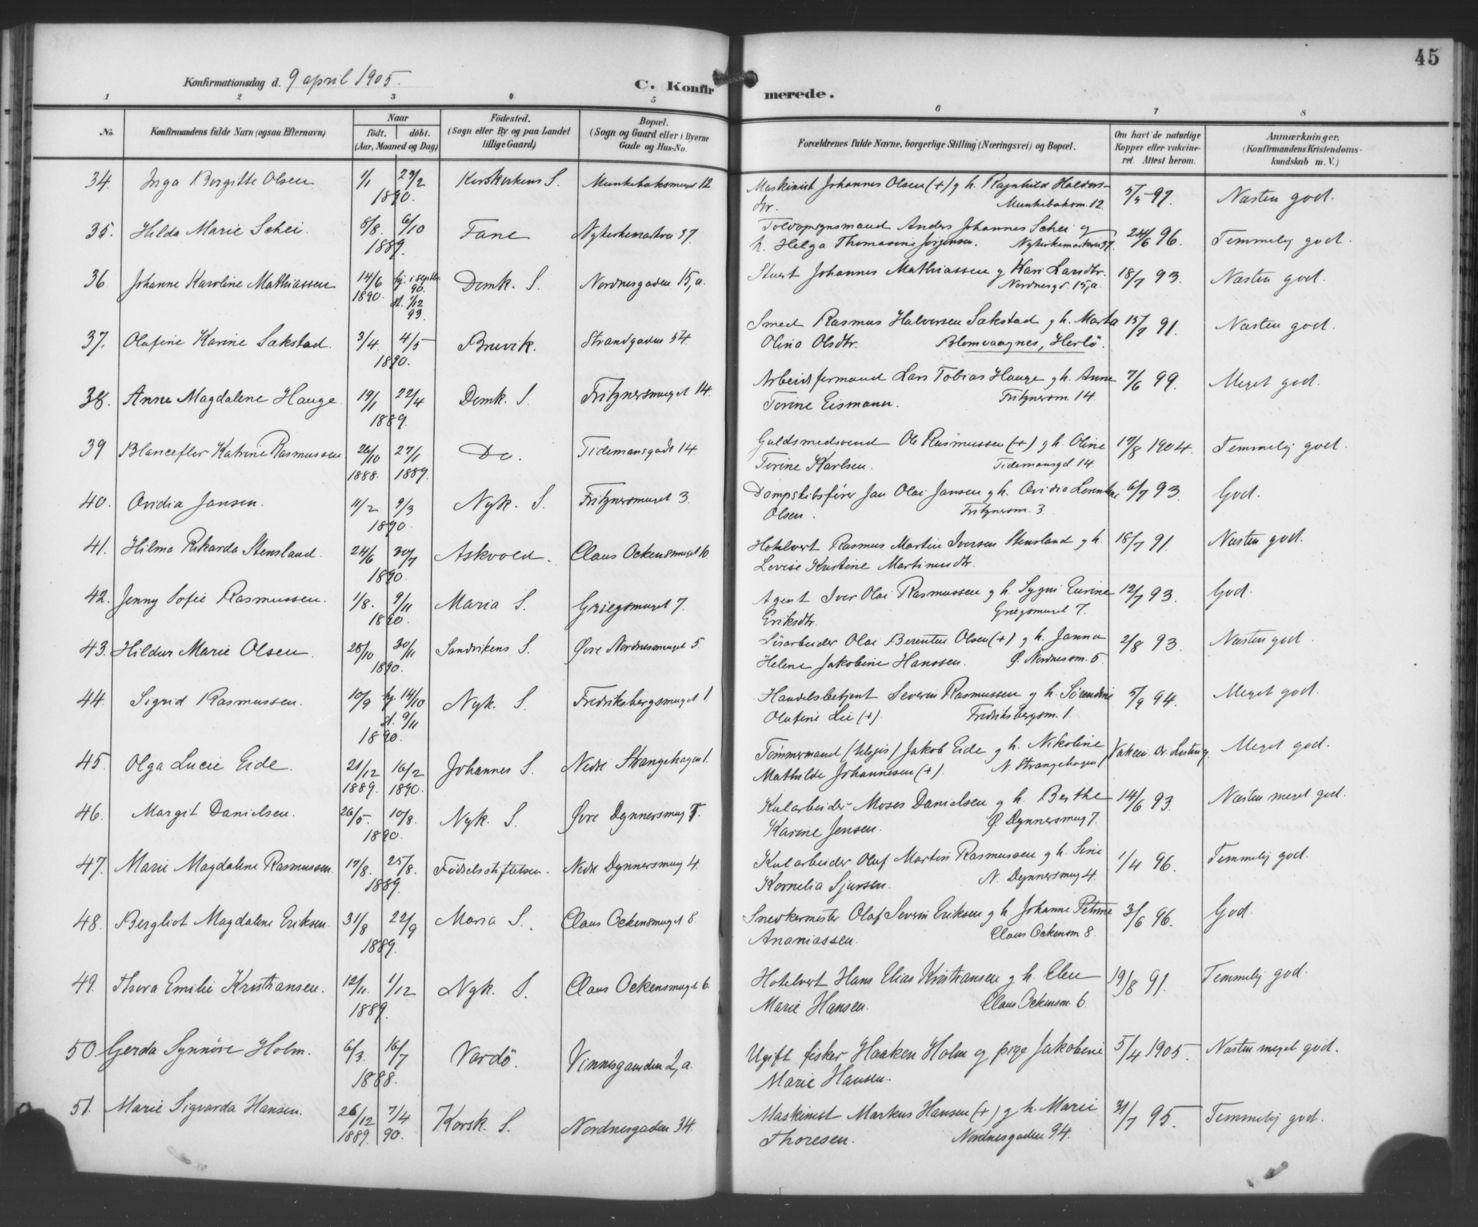 45
Konfirmationsdag d. 9 april 1905.
C. Konfirmerede.
1 2 3 4 5 6 7 8
No.
Konfirmandens fulde Navn (ogsaa Efternavn)
Naar
født. døbt.
(Aar, Maaned og Dag)
Fødested.
(Sogn eller By og paa Landet
tillige Gaard)
Bopæl.
(Sogn og Gaard eller i Byerne
Gade og Hus-No.
Forældrenes fulde Navne, borgerlige Stilling (Næringsvei) og Bopæl.
Om havt de naturlige
Kopper eller vakcine-
ret. Attest herom.
Anmærkninger.
(Konfirmandens Kristendoms-
kundskab m. V.)
34. Inga Birgitte Olsen 1/1 1890. Korskirkens S. 12 Maskinist Johannes Olsen (+) g h. Ragnhild Haldors-
dtr. 12. 97. Næsten god.
35. Hilda Marie Schei. 8/8. 6/10 1889. Fane 37 Toldopsynsmand Anders Johannes Schei g
h. Helga Thomasine Jørgensen. 37. 24/6 96. Temmelig god.
36. Johanne Karoline Mathiassen 14/6 1890. hj. i septbr. 90. st. 1/12 93. Domk. S. Nordnesgaden 15,a. Stuert Johannes Mathiassen g Kari Larsdtr.
Nordnesgd. 15,a. 18/7 93. Næsten god.
37. Olafine Karine Sakstad. 3/4. 4/5 1890. Bruvik. Strandgaden 34 Smed Rasmus Halvorsen Sakstad g h. Marta
Olina Olsdtr. Blomvaagnes, Herlø. 15/7 91. Næsten god.
38. Anne Magdalene Hauge. 19/1 22/4 1889. Domk. S. Fritznersmuget 14. Arbeidsformand Lars Tobias Hauge g h. Anne
Torine Eismann. Fritznersm 14. 7/6 99. Meget god.
39 Blancefler Katrine Rasmussen 26/10 1888. 27/1 1889. Do. Tidemansgade 14 Guldsmedsvend Ole Rasmussen (+) g h. Oline
Torine Karlsen. Tidemansgd 14. 17/8 1904. Temmelig god.
40. Ovidia Jansen. 11/2 9/3 1890. Nyk. S. Fritznersmuget 3. Dampskibsfører Jan Olai Jansen g h. Ovidia
Olsen. Fritznersm. 3. 6/7 93. God.
41. Hilma Rikarda Stensland. 24/6 20/7 1890. Askvold. Claus Ockensmuget 10 Hotelvert Rasmus Martin Iversen Stensland g h.
Lovise Kristine Martinusdtr. 18/7 91. Næsten god.
42. Jenny Sofie Rasmussen. 1/8. 9/11 1890. Maria S. Griegsmuget 7. Agent Iver Olai Rasmussen g h. Sygni Eurine
Eriksdtr. Griegsmuget 7. 12/7 93. God.
43. Hildur Marie Olsen. 28/10 30/11 1890. Sandvikens S. Øvre Nordnesmuget 5. Olai Berentin Olsen (+) g h. Janna
Helene Jakobine Hanssen. Ø. Nordnesm. 5 2/8 93. Næsten god.
44. Sigrid Rasmussen. 10/9 hj. 14/10 st. 9/11 1890. Nyk. S. Fredriksbergsmuget 1 Handelsbetjent Severin Rasmussen g h. Sørendine
Olafine Lie (+). Fredriksbergsm. 1. 5/9 94. Meget god.
45. Olga Lucie Eide. 21/12 1889. 16/2 1890. Johannes S. Nedre Strangehagen 1. Tømmermand Jakob Eide g h. Nikoline
Mathilde Johannesen (+). N Strangehagen 1 Vakcin. Meget god.
46. Margit Danielsen. 26/5. 10/8. 1890. Nyk S. Øvre Dynnersmug 7. Kularbeider Moses Danielsen g h. Berthe
Karine Jensen. Ø Dynnersmug 7. 14/6 93. Næsten meget god.
47. Marie Magdalene Rasmussen. 17/8. 25/8. 1889. Fødselsstiftelsen. Nedre Dynnersmug 4. Kularbeider Olaf Martin Rasmussen g h. Sine
Kornelia Sjursen. N. Dynnersmug 4. 1/4 96. Temmelig god.
48. Bergliot Magdalene Eriksen. 31/8 22/9 1889. Maria S. Claus Ockensmuget 8. Snedkermester Olaf Severin Eriksen g h. Johanne Petrine
Ananiassen. Claus Ockensm 8. 3/6 96. God.
49. Thora Emilie Kristiansen. 12/11. 1/12 1889. Nyk. S. Claus Ockensmuget 6. Hotelvert Hans Elias Kristiansen g h. Elen
Marie Hansen. Claus Ockensm. 6. 19/8 91. Temmelig god.
50. Gerda Synnøve Holm. 6/3. 16/7 1888. Vardø. 2,a. Ugift fisker Haaken Holm og pige Jakobine
Marie Hansen. 5/4 1905. Næsten meget god.
51. Marie Sigvarda Hansen. 26/12 1889. 7/4 90. Korsk. S. Nordnesgaden 34. Maskinist Markus Hansen (+) g h. Marie
Thoresen. Nordnesgaden 94. 31/7 95. Temmelig god.